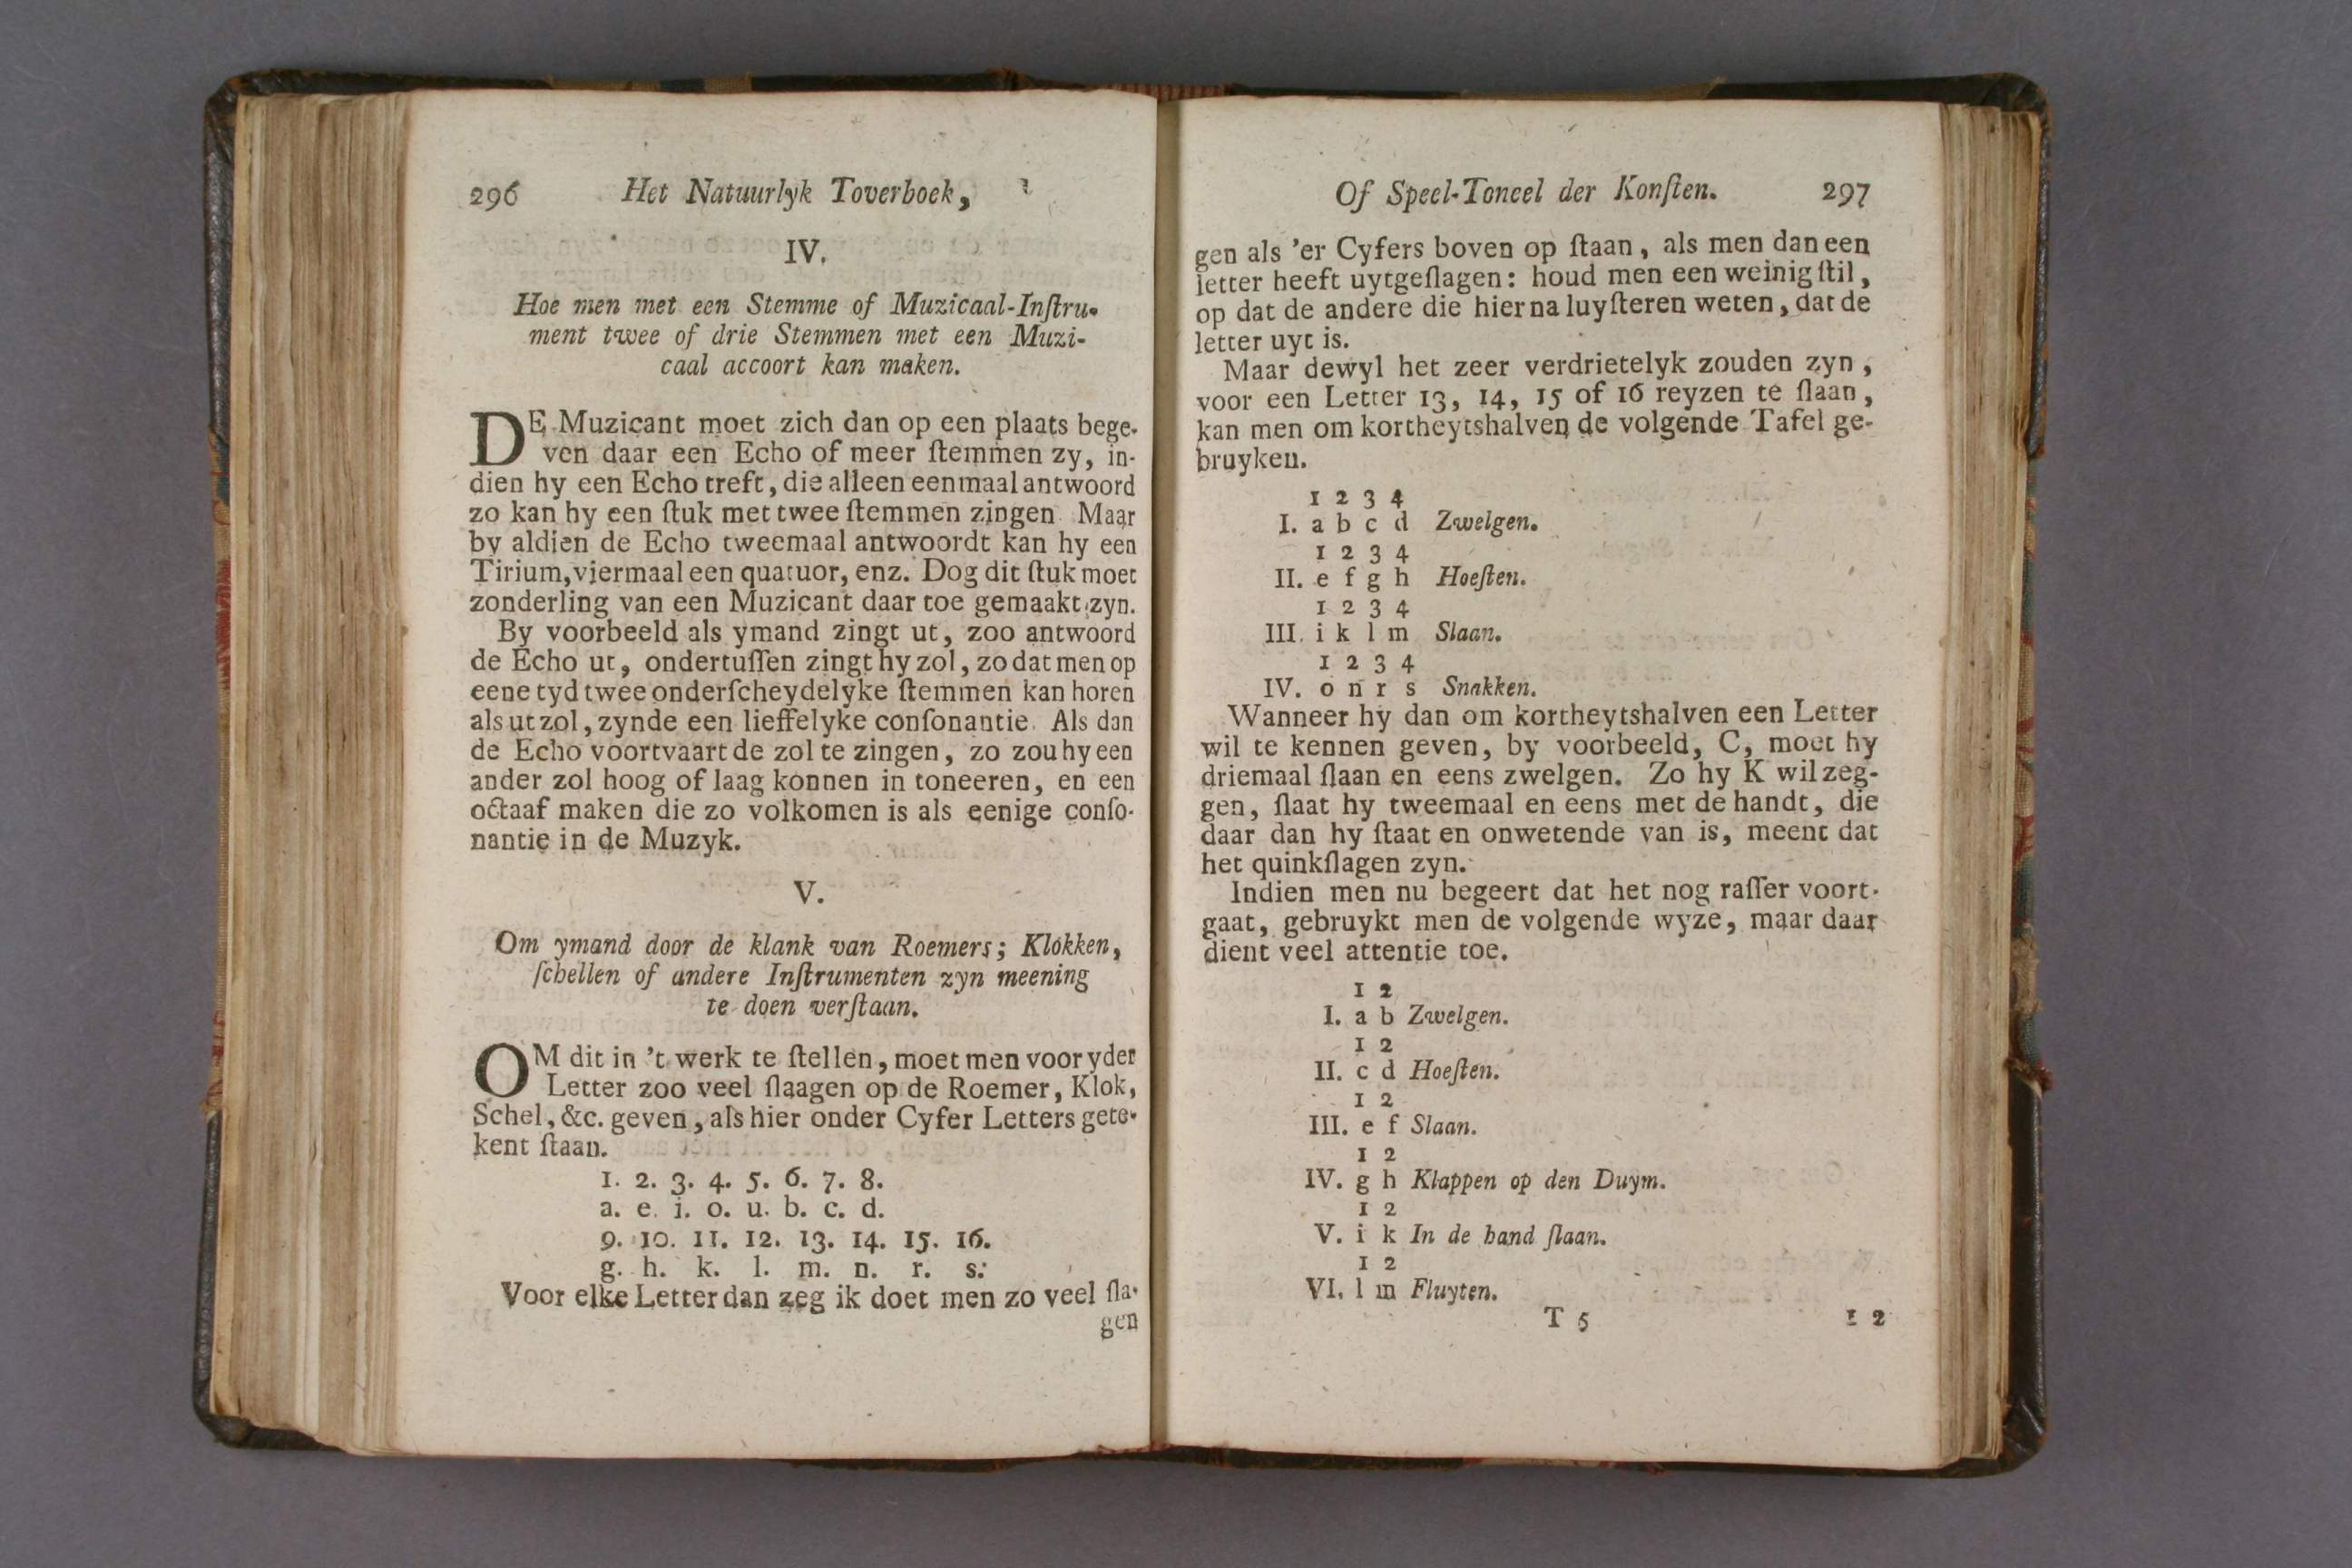 296 Het Natuurlyk Toverboek,
IV.
Hoe men met een Stemme of Muzicaal-Inſtru-
ment twee of drie Stemmen met een Muzi-
caal accoort kan maken.
DE Muzicant moet zich dan op een plaats bege-
ven daar een Echo of meer ſtemmen zy, in-
dien hy een Echo treft, die alleen eenmaal antwoord
zo kan hy een ſtuk met twee ſtemmen zingen Maar
by aldien de Echo tweemaal antwoordt kan hy een
Tirium, viermaal een quatuor, enz. Dog dit ſtuk moet
zonderling van een Muzicant daar toe gemaakt zyn.
By voorbeeld als ymand zingt ut, zoo antwoord
de Echo ut, ondertuſſen zingt hy zol, zo dat men op
eene tyd twee onderſcheydelyke ſtemmen kan horen
als ut zol, zynde een lieffelyke conſonantie. Als dan
de Echo voortvaart de zol te zingen, zo zou hy een
ander zol hoog of laag konnen in toneeren, en een
octaaf maken die zo volkomen is als eenige conſo-
nantie in de Muzyk.
V.
Om ymand door de klank van Roemers; Klokken,
ſchellen of andere Inſtrumenten zyn meening
te doen verſtaan.
OM dit in 't werk te ſtellen, moet men voor yder
Letter zoo veel ſlaagen op de Roemer, Klok,
Schel, &c. geven, als hier onder Cyfer Letters gete-
kent ſtaan.
1. 2. 3. 4. 5. 6. 7. 8.
a. e. i. o. u. b. c. d.
9. 10. 11. 12. 13. 14. 15. 16.
g. h. k. l. m. n. r. s.
Voor elke Letter dan zeg ik doet men zo veel ſla-
gen
Of Speel-Toneel der Konſten. 297
gen als 'er Cyfers boven op ſtaan, als men dan een
letter heeft uytgeſlagen: houd men een weinig ſtil,
op dat de andere die hier na luyſteren weten, dat de
letter uyt is.
Maar dewyl het zeer verdrietelyk zouden zyn,
voor een Letter 13, 14, 15 of 16 reyzen te ſlaan,
kan men om kortheytshalven de volgende Tafel ge-
bruyken.
1 2 3 4
I. a b c d Zwelgen.
1 2 3 4
II. e f g h Hoeſten.
1 2 3 4
III. i k l m Slaan.
1 2 3 4
IV. o n r s Snakken.
Wanneer hy dan om kortheytshalven een Letter
wil te kennen geven, by voorbeeld, C, moet hy
driemaal ſlaan en eens zwelgen. Zo hy K wil zeg-
gen, ſlaat hy tweemaal en eens met de handt, die
daar dan hy ſtaat en onwetende van is, meent dat
het quinkſlagen zyn.
Indien men nu begeert dat het nog raſſer voort-
gaat, gebruykt men de volgende wyze, maar daar
dient veel attentie toe.
1 2
I. a b Zwelgen.
1 2
II. c d Hoeſten.
1 2
III. e f Slaan.
1 2
IV. g h Klappen op den Duym.
1 2
V. i k In de hand ſlaan.
1 2
VI. l m Fluyten.
T 5 1 2